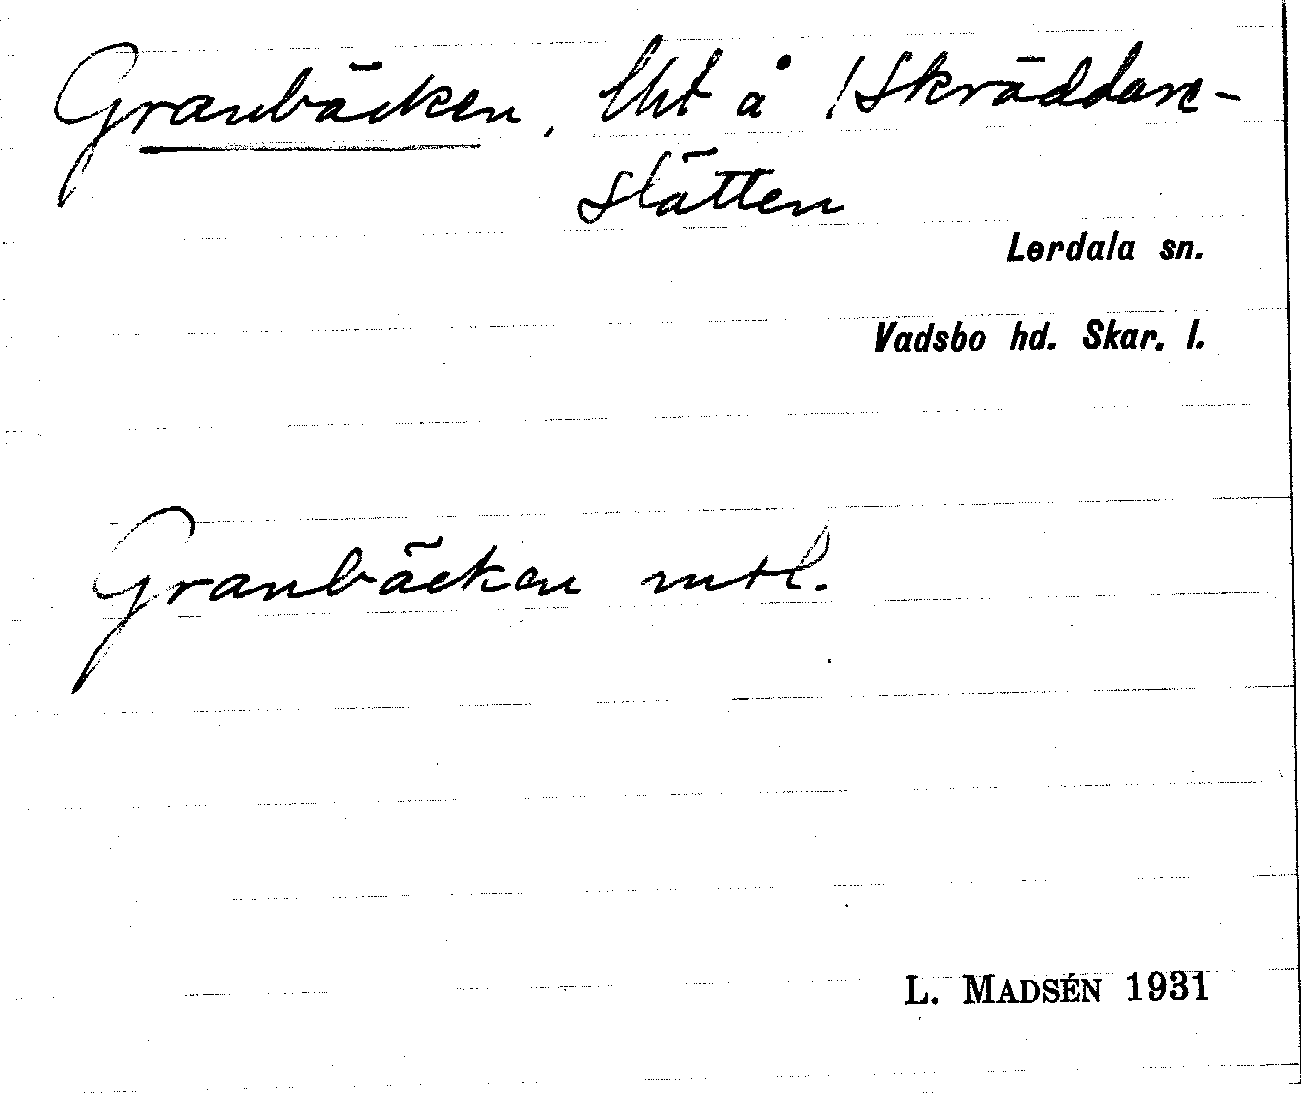 Granbäcken, lht å 1 Skräddare-
slätten
Lerdala sn.
Vadsbo hd. Skar. l.
Granbäcken mtl.
L. MADSÉN 1931